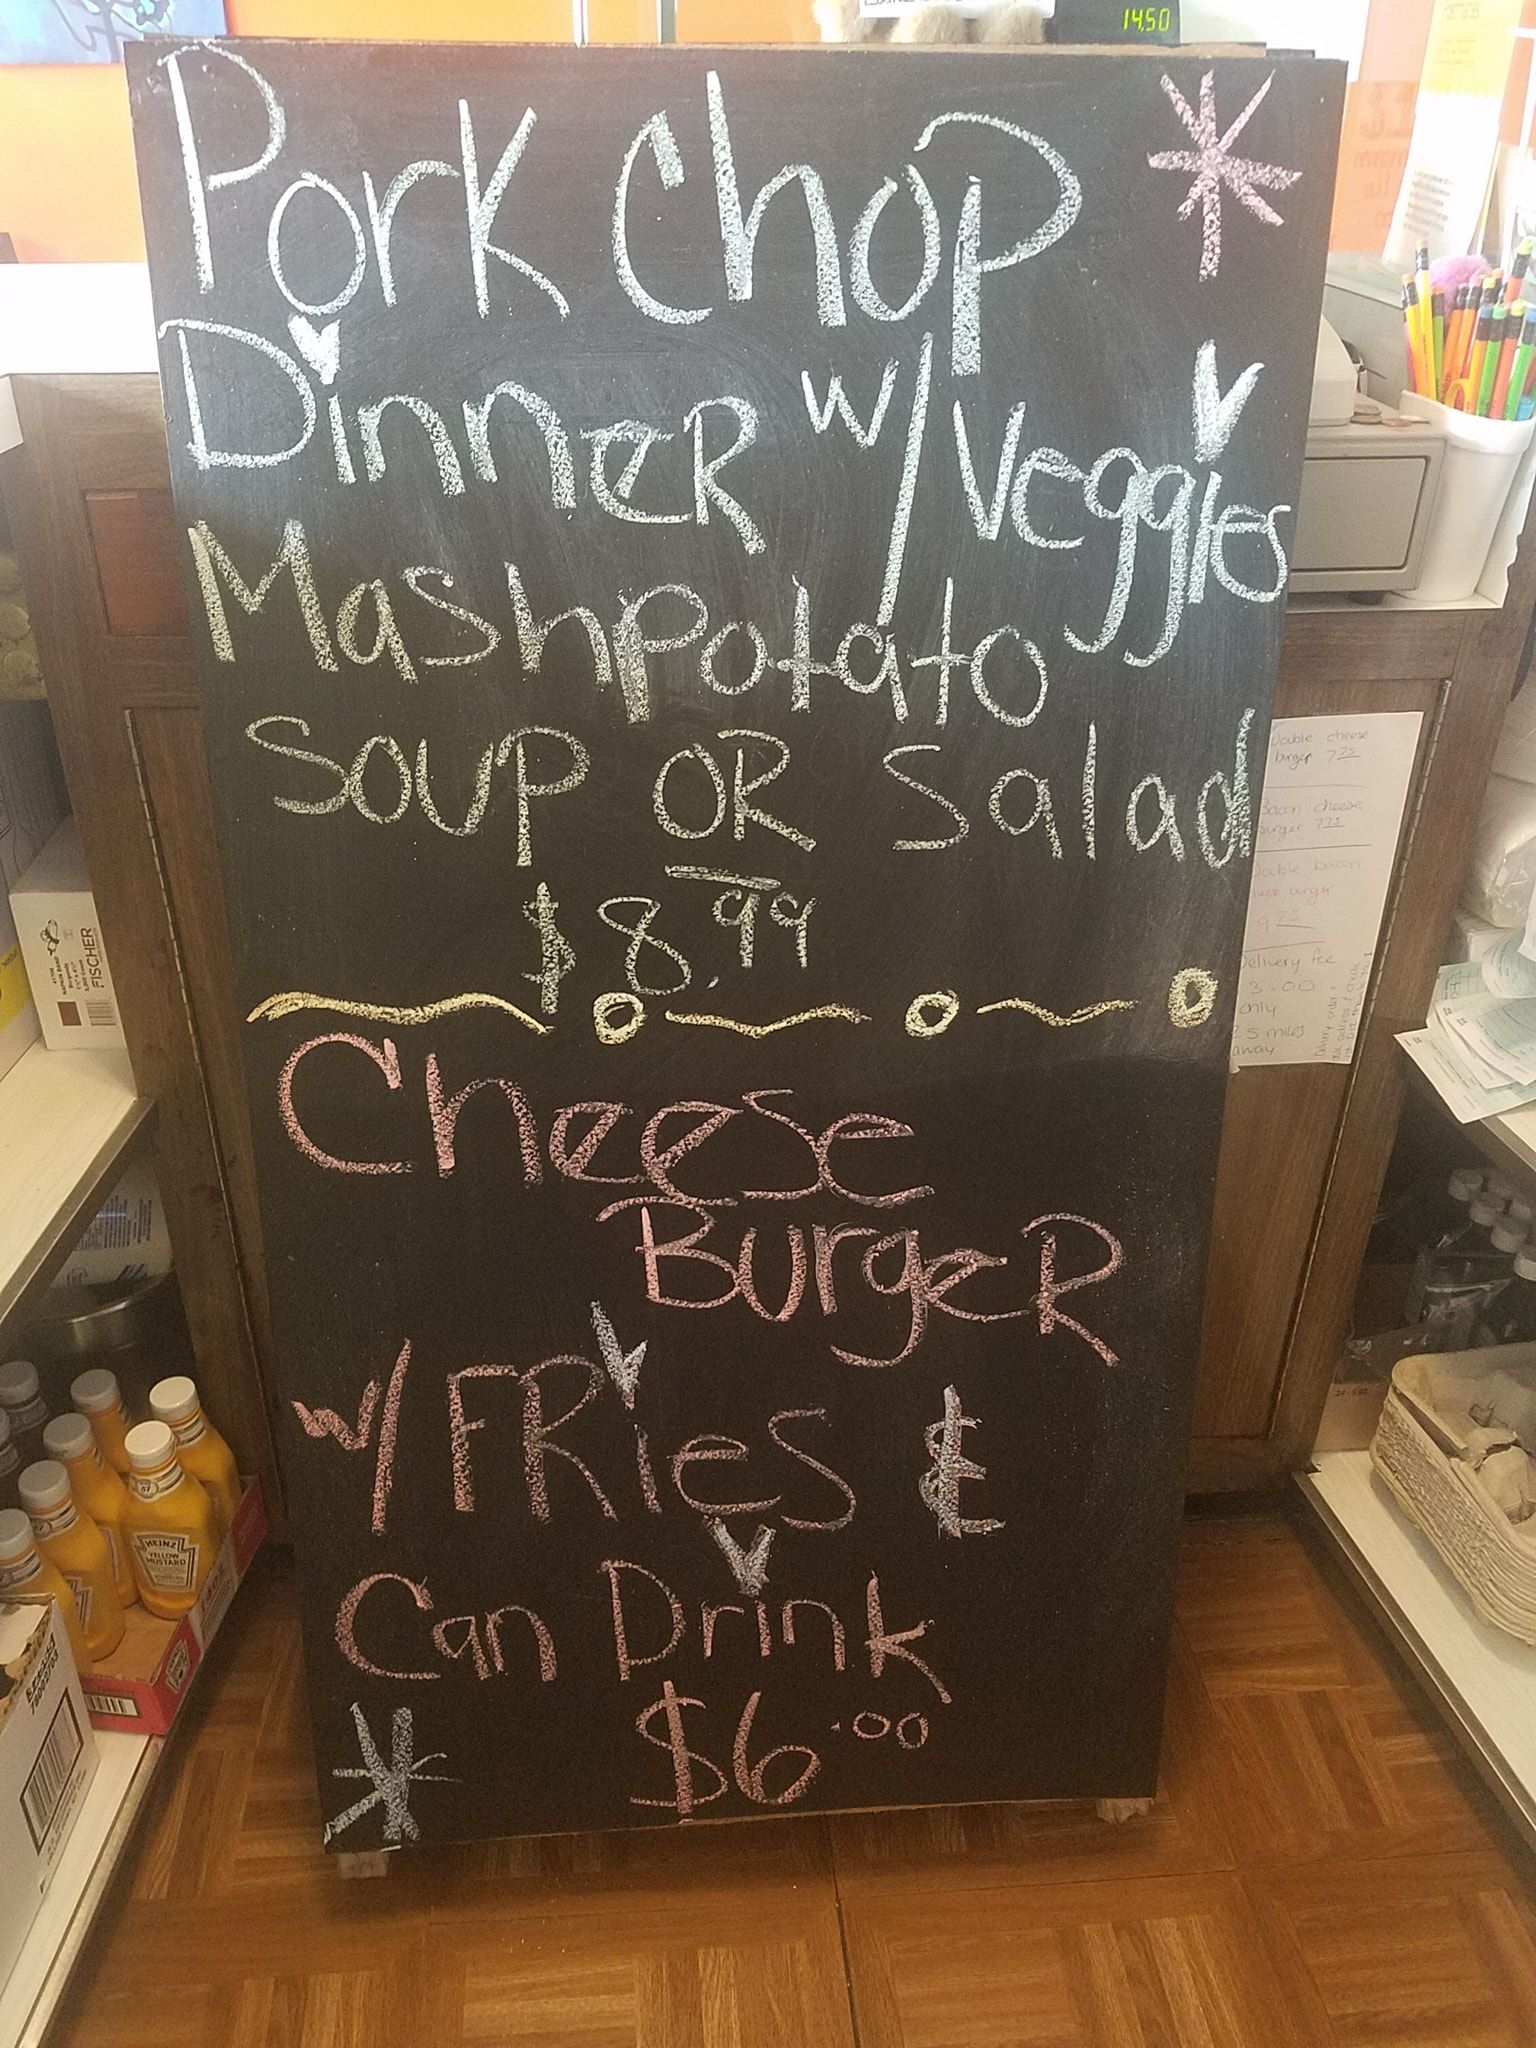 14.50
Pork Chop
Dinner w/ Veggies
Mashpotato
Soup or Salad
$8.99
Cheese
Burger
w/ Fries &
Can Drink
$6.00
Double cheese
burger 7.75
Bacon cheese
burger 7.75
Double bacon
cheese burger
9.75
Delivery fee
3.00
only
5 miles
away
FISCHER
HEINZ
YELLOW
MUSTARD